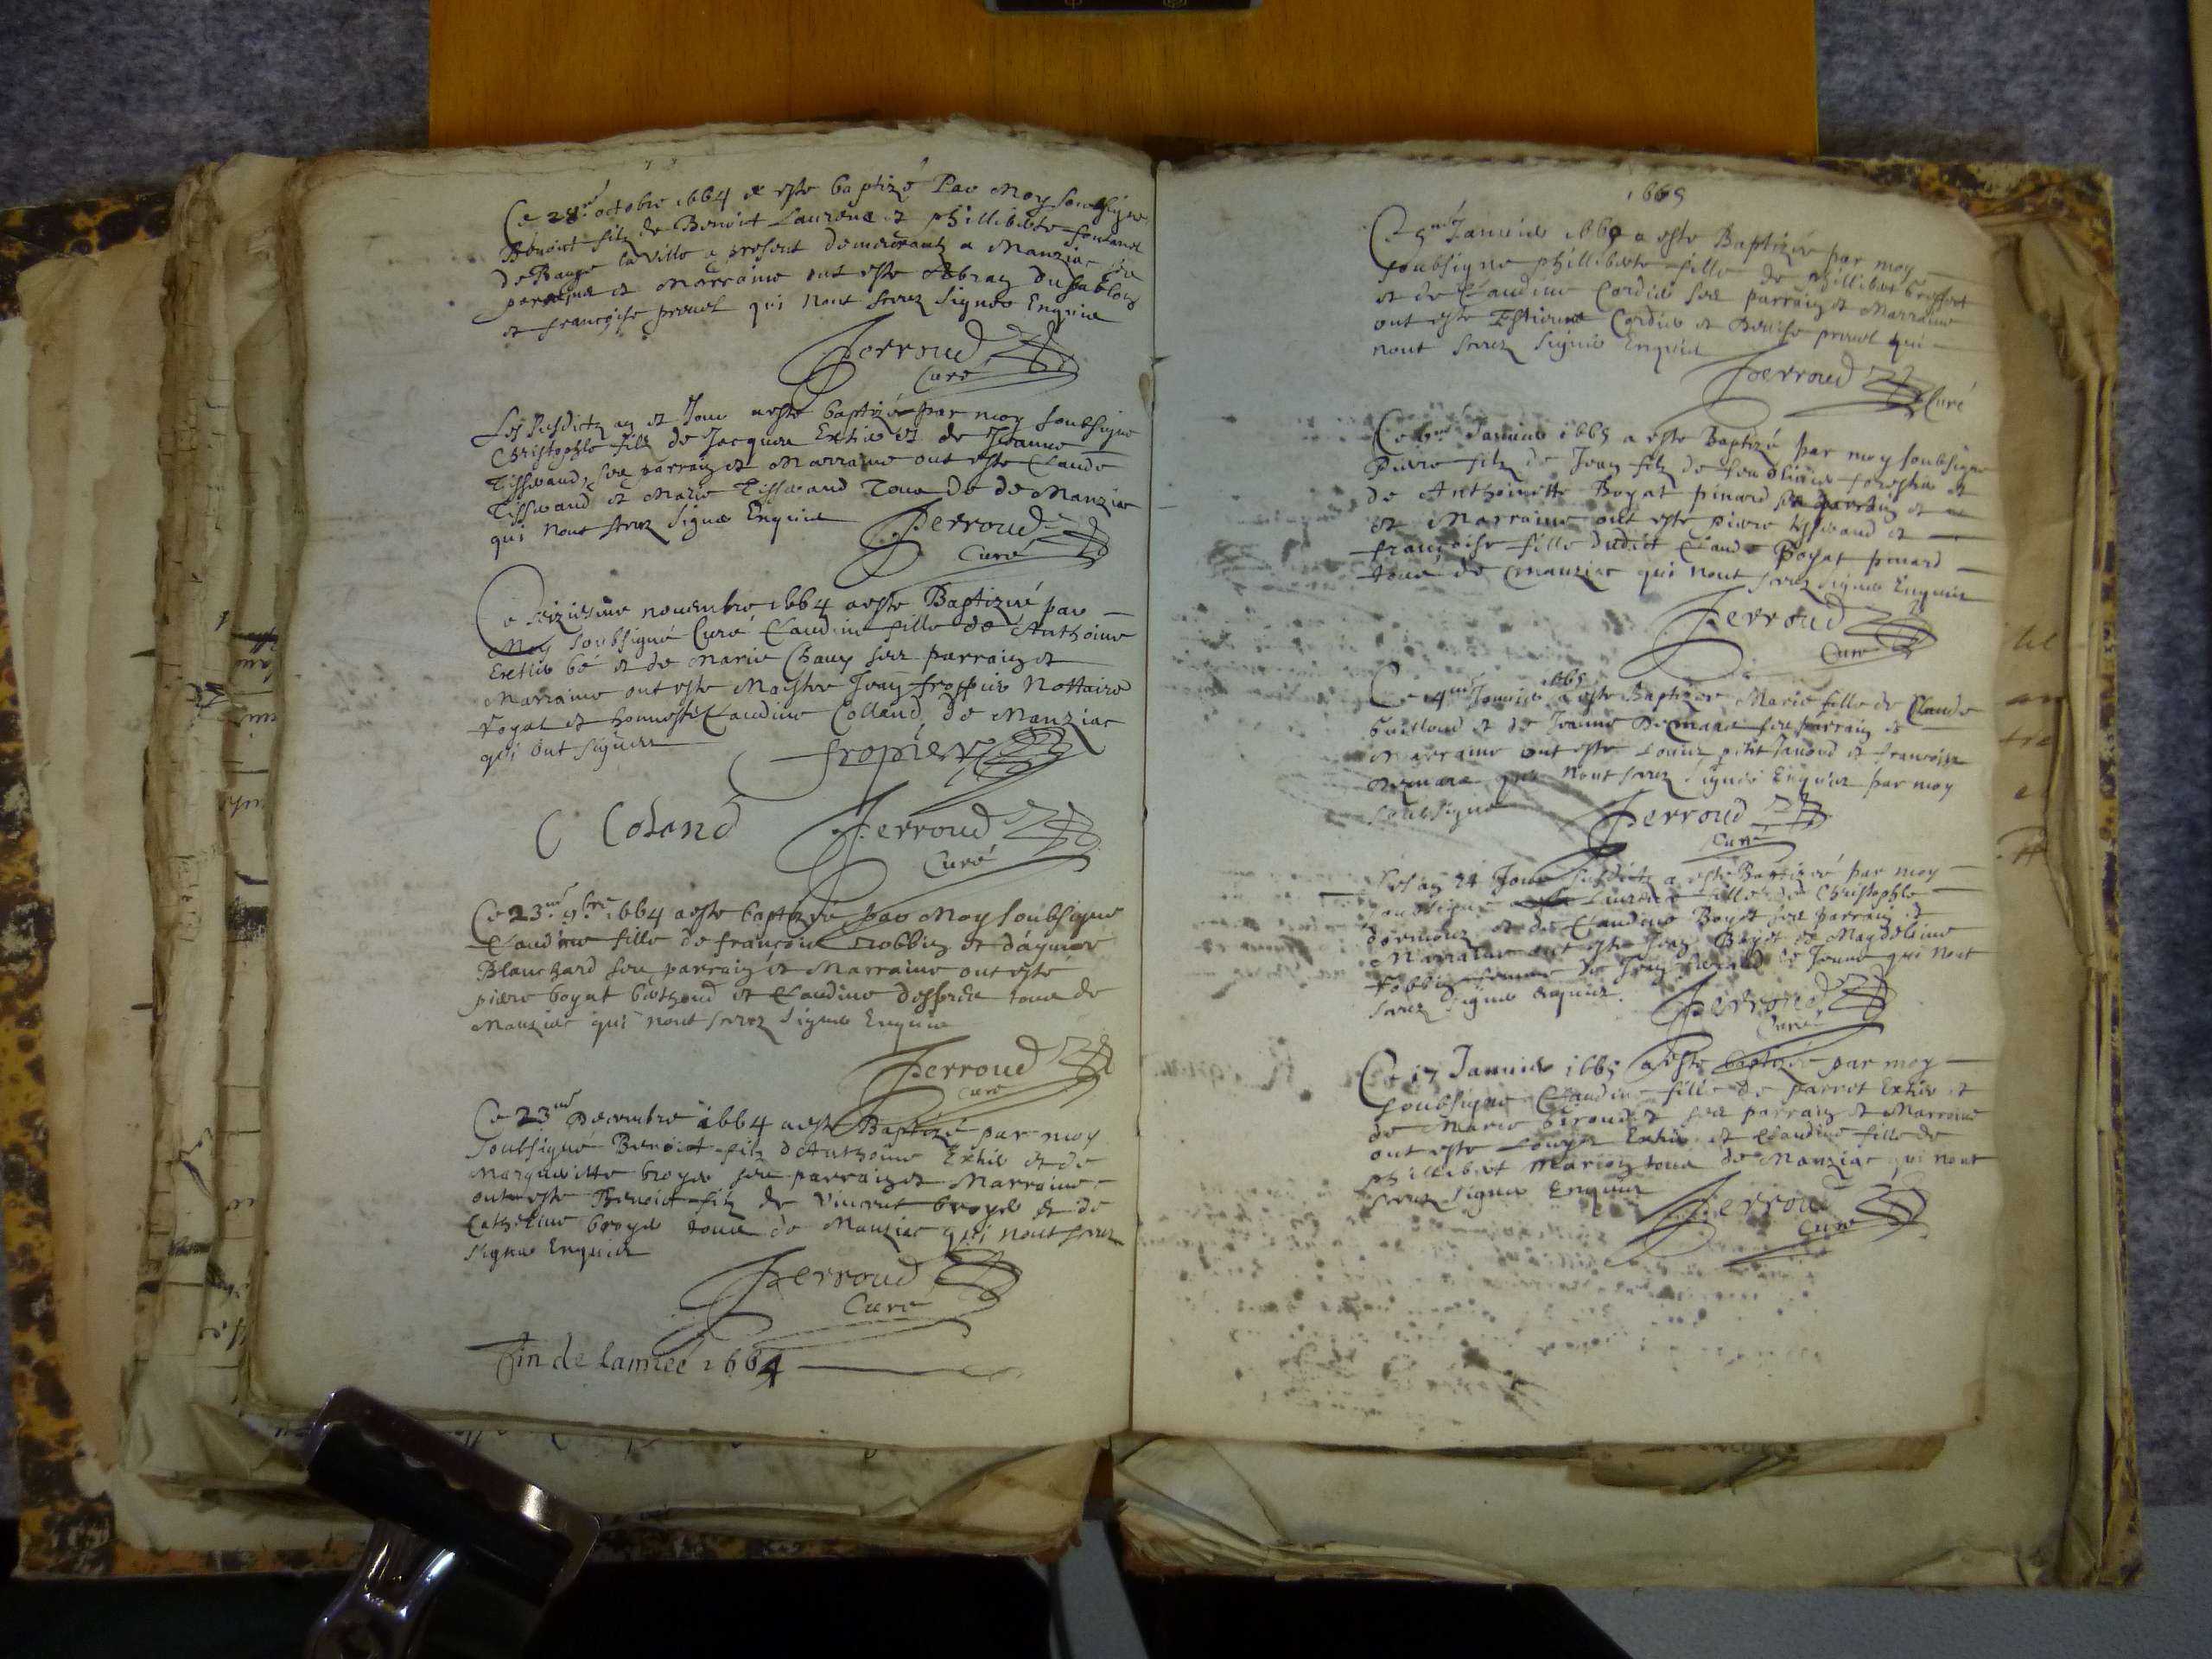 Ce 28e octobre 1664 a este baptizé Par Moy soubsigne
Benoist filz de Benoist Laurent et phillibérte fontanel
de Baugé la ville a present demeurantz a Manziac
parrain et Marraine ont este du sablon
et françoise pruvel qui nont sceuz signer Enquis
Perroud
Curé
Les susdictz an et Jour a este baptizé par moy soubsigne
Christophle filz de Jacques Extier et de Jeanne
Tisserand, ses parrain et Marraine ont este Claude
Tisserand et Marie Tisserand Tous de de Manziac
qui nont sceuz signer Enquis
Perroud
Curé
Ce seiziesme novembre 1664 a este Baptizée par
Moy soubsigné Curé Claudine fille de Anthoine
Extier bé et de Marie Chany ses parrain et
Marraine ont este Maistre Jean froppier Nottaire
royal et honneste Claudine Colland, de Manziac
qui ont signés
fropier
C Coland
Perroud
Curé
Ce 23me 9bre 1664 a este baptizée par Moy soubsigne
Claudine fille de françois robbin et daymée
Blanchard ses parrain et Marraine ont esté
pierre boyat berthoud et Claudine tous de
Manziac qui nont sceuz signer Enquis
Perroud
Curé
Ce 23me Decembre 1664 a este Baptizé par moy
Soubsigné Benoist filz dAnthoine Extier et de
Margueritte broyer ses parrain et Marraine
ont este Benoist filz de Vincent broyer et de
Catherine broyer tous de Manziac qui nont sceuz
signer Enquis
Perroud
Curé
Fin de lannee 1664
1665
Ce 5me Janvier 1665 a este Baptizée par moy
soubsigne phillibérte fille de phillibert
et de Claudine Cordier ses parrain et Marraine
ont este Estienne Cordier et Denise pruvel qui
nont sceuz signer Enquis
Perroud
Curé
Ce Janvier 1665 a este Baptizé par moy soubsigne
Pierre filz de Jean filz de feu forestier et
de Anthoinette Boyat pinard ses parrain et
et Marraine ont este pierre tisserand et
françoise fille dudict Claude Boyat pinard
tous de manziac qui nont sceuz signer Enquis
Perroud
Curé
1665
Ce Janvier a este Baptizée Marie fille de Claude
et de Jeanne ses parrain et
Marraine ont este Louis petit Janoud et francoise
qui nont sceuz signer Enquis par moy
soubsigne
Perroud
Curé
Les an et Jour susdictz a este Baptizée par moy
soubsigne fille de Christophle
et de Claudine Boyat ses parrain et
Marraine ont este Jean Boyat et Magdeleine
robbin femme de Jean qui nont
sceuz signer enquis
Perroud
Curé
Ce 17 Janvier 1665 a este baptizée par moy
soubsigne Claudine fille de parnet Extier et
de Marie ses parrain et Marraine
ont este Louys Extier et Claudine fille de
phillibert Marion tous de Manziac qui nont
sceuz signer Enquis
Perroud
Curé